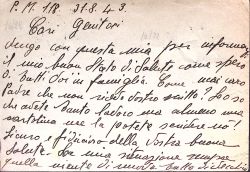 P.M. 18. 31.8.43.
Cari Genitori
Vengo con questa mia per informa
il mio buon stato di Salute come spero
di tutti voi in famiglia. Come mai caro
Padre che non ricevo vostro scritto? Lo so
che avete tanto lavoro ma almeno una
cartolina me la potete scrivere no!
Sicuro, e della vostra buona
Salute. la mia situazione sempre
quella niente di nuovo tutto